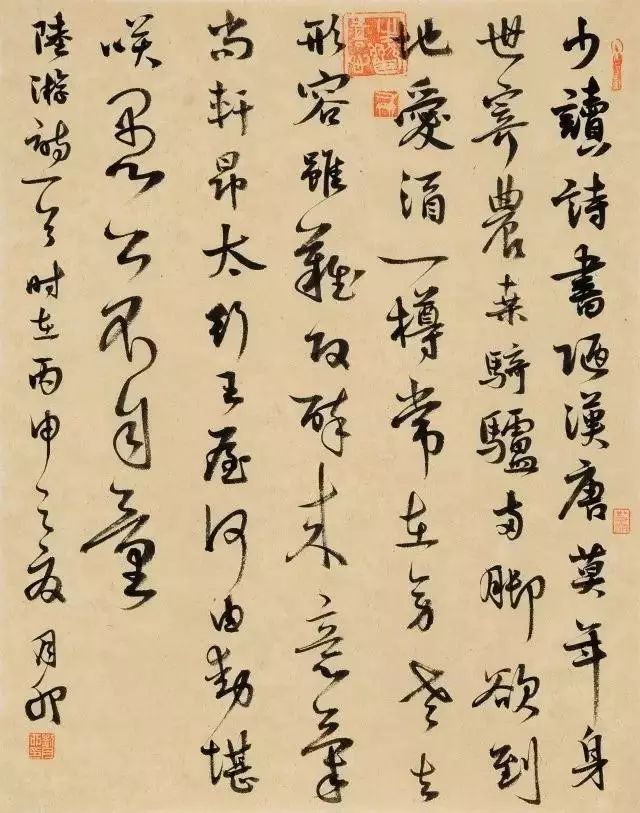 少讀詩書陋漢唐莫年身
世寄農桒騎驢兩腳欲到
地愛酒一樽常在旁老去
形容雖難改醉來意氣
尚軒昂太行王屋何由動堪
咲愚公不自量
陸游詩一首時在丙申之夏月卯